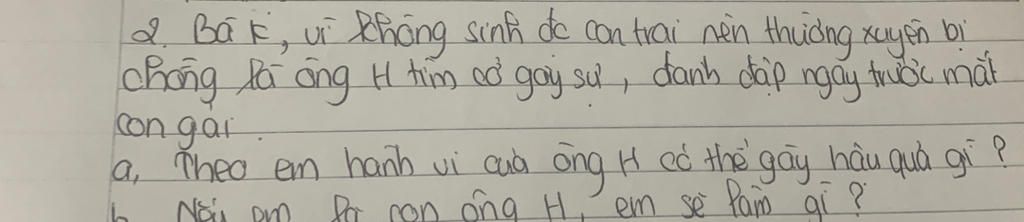 2. Bà K, vì không sinh đc con trai nên thường xuyên bị
chồng là ông H tìm cớ gây sự, đánh đập ngay trước mặt
con gái.
a, Theo em hành vi của ông H có thể gây hậu quả gì?
Nếu em là con ông H, em sẽ làm gì?